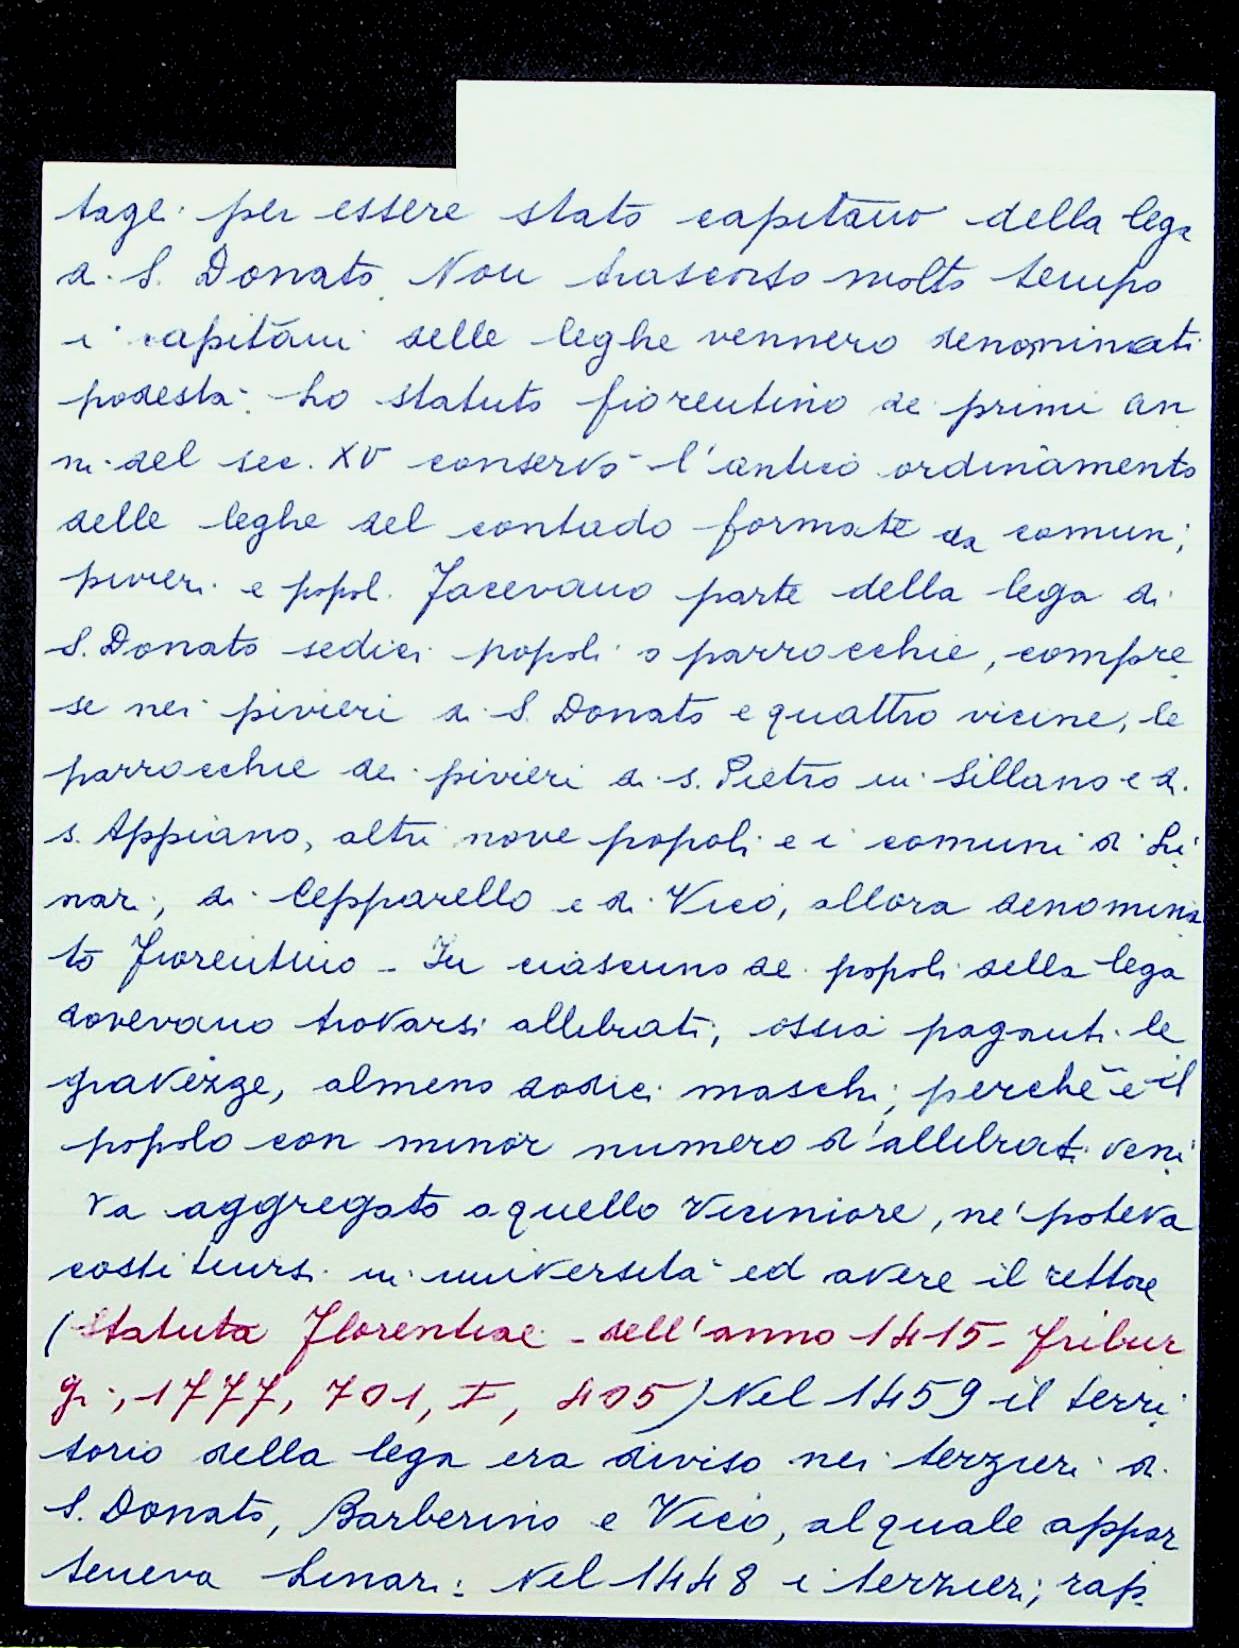 tagi per essere stato capitano della lega
di S. Donato. Non trascorso molto tempo
i capitani delle leghe vennero denominati
podestà. Lo statuto fiorentino de primi an
ni del sec. XV conservò l'antico ordinamento
delle leghe del contado formate da comuni,
pivieri e popoli. Facevano parte della lega di
S. Donato sedici popoli o parrocchie, compre
se nei pivieri di S. Donato e quattro vicine, le
parrocchie dei pivieri di S. Pietro in Sillano e di
S. Appiano, altri nove popoli e i comuni di Li
nari, di Cepparello e di Vico, allora denomina
to Fiorentino - In ciascuno de popoli della lega
dovevano trovarsi allibrati, ossia paganti le
gravezze, almeno dodici maschi; perchè e il
popolo con minor numero d'allibrati veni
va aggregato a quello viciniore, ne' poteva
costituirsi in università ed avere il rettore
(Statuta Florentiae - dell'anno 1415 - Fribur
gi, 1777, 701, I, 405) Nel 1459 il terri
torio della lega era diviso nei terzieri di
S. Donato, Barberino e Vico, al quale appar
teneva Linari: Nel 1448 i terzieri, rap